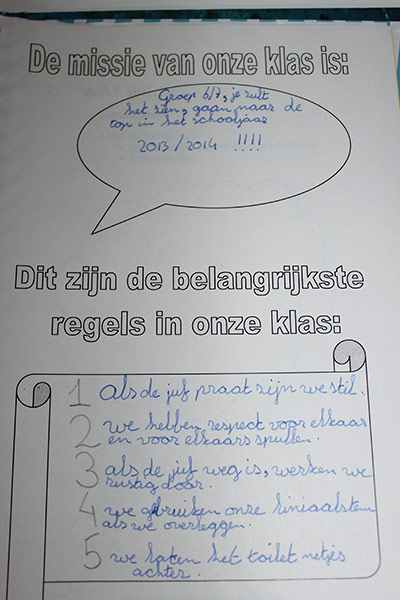 De missie van onze klas is:
Groep 6/7, je zult
het zien, gaan naar de
top in het schooljaar
2013/2014 !!!!
Dit zijn de belangrijkste
regels in onze klas:
1 als de juf praat zijn we stil.
2 we hebben respect voor elkaar
en voor elkaars spullen.
3 als de juf weg is, werken we
rustig door.
4 we gebruiken onze liniaalstem
als we overleggen.
5 we laten het toilet netjes
achter.